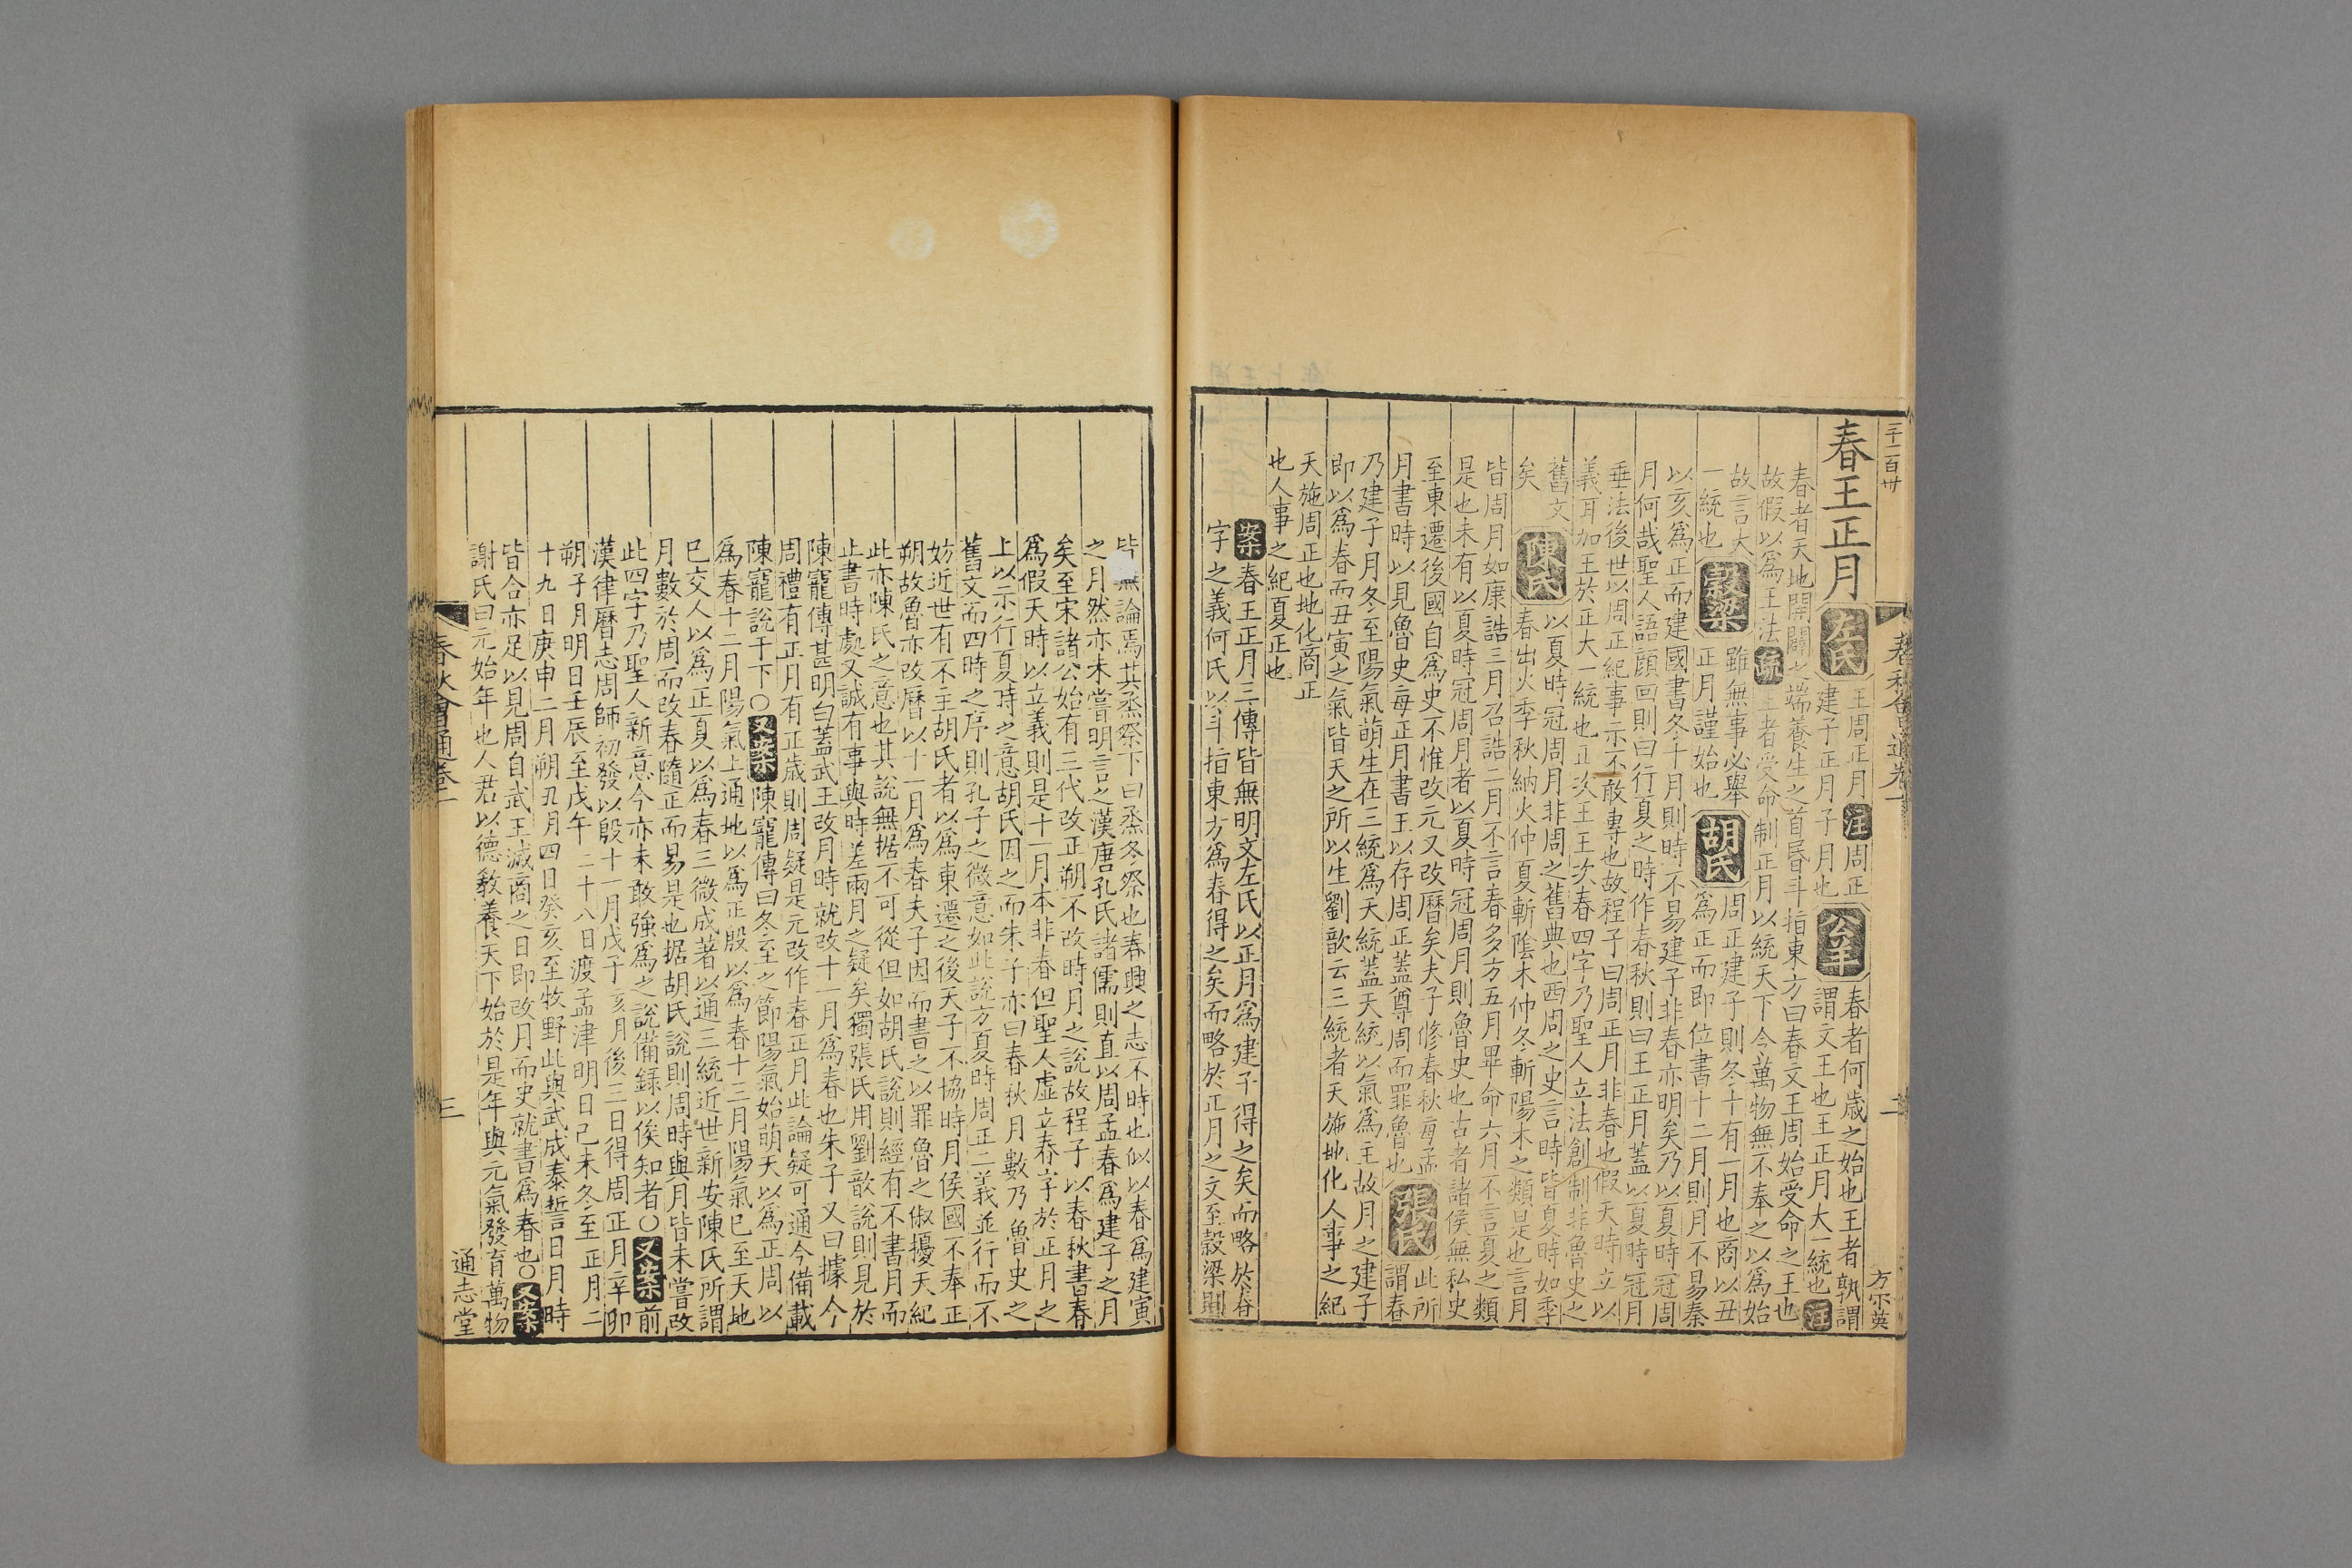 三千二百卅
春秋會通卷一
二
方宗英
春王正月
左氏
王周正月
注
周正
建子正月子月也
公羊
春者何歲之始也王者孰謂
謂文王也王正月大一統也
注
春者天地開闢之端養生之首昏斗指東方曰春文王周始受命之王也
故假以爲王法
疏
王者受命制正月以統天下令萬物無不奉之以爲始
故言大
一統也
穀梁
雖無事必舉
正月謹始也
胡氏
周正建子則冬十有一月也商以丑
爲正而即位書十二月則月不易秦
以亥爲正而建國書冬十月則時不易建子非春亦明矣乃以夏時冠周
月何哉聖人語顏回則曰行夏之時作春秋則曰王正月蓋以夏時冠月
垂法後世以周正紀事示不敢專也故程子曰周正月非春也假天時立以
義耳加王於正大一統也正次王王次春四字乃聖人立法創制非魯史之
舊文
矣
陳氏
以夏時冠周月非周之舊典也西周之史言時皆夏時如季
春出火季秋納火仲夏斬陰木仲冬斬陽木之類是也言月
皆周月如康誥三月召誥二月不言春多方五月畢命六月不言夏之類
是也未有以夏時冠周月者以夏時冠周月則魯史也古者諸侯無私史
至東遷後國自爲史不惟改元又改曆矣夫子修春秋每孟
月書時以見魯史每正月書王以存周正蓋尊周而罪魯也
張氏
此所
謂春
乃建子月冬至陽氣萌生在三統爲天統蓋天統以氣爲主故月之建子
即以爲春而丑寅之氣皆天之所以生劉歆云三統者天施地化人事之紀
天施周正也地化商正
也人事之紀夏正也
案
春王正月三傳皆無明文左氏以正月爲建子得之矣而略於春
字之義何氏以斗指東方爲春得之矣而略於正月之文至穀梁則
皆無論焉其烝祭下曰烝冬祭也春興之志不時也似以春爲建寅
之月然亦未嘗明言之漢唐孔氏諸儒則直以周孟春爲建子之月
矣至宋諸公始有三代改正朔不改時月之說故程子以春秋書春
爲假天時以立義則是十一月本非春但聖人虛立春字於正月之
上以示行夏時之意胡氏因之而朱子亦曰春秋月數乃魯史之
舊文而四時之序則孔子之微意如此說方夏時周正二義並行而不
妨近世有不主胡氏者以爲東遷之後天子不協時月侯國不奉正
朔故魯亦改曆以十一月爲春夫子因而書之以罪魯之俶擾天紀
此亦陳氏之意也其說無据不可從但如胡氏說則經有不書月而
止書時處又誠有事與時差兩月之疑矣獨張氏用劉歆說則見於
陳寵傳甚明白蓋武王改月時就改十一月爲春也朱子又曰據今
周禮有正月有正歲則周疑是元改作春正月此論疑可通今備載
陳寵說于下〇
又案
陳寵傳曰冬至之節陽氣始萌天以爲正周以
爲春十二月陽氣上通地以爲正殷以爲春十三月陽氣已至天地
已交人以爲正夏以爲春三微成著以通三統近世新安陳氏所謂
月數於周而改春隨正而易是也据胡氏說則周時與月皆未嘗改
此四字乃聖人新意今亦未敢強爲之說備録以俟知者〇
又案
前
漢律曆志周師初發以殷十一月戊子亥月後三日得周正月辛卯
朔子月明日壬辰至戊午二十八日渡孟津明日己未冬至正月二
十九日庚申二月朔丑月四日癸亥至牧野此與武成泰誓日月時
皆合亦足以見周自武王滅商之日即改月而史就書爲春也〇
又案
謝氏曰元始年也人君以德敎養天下始於是年與元氣發育萬物
春秋會通卷一
三
通志堂